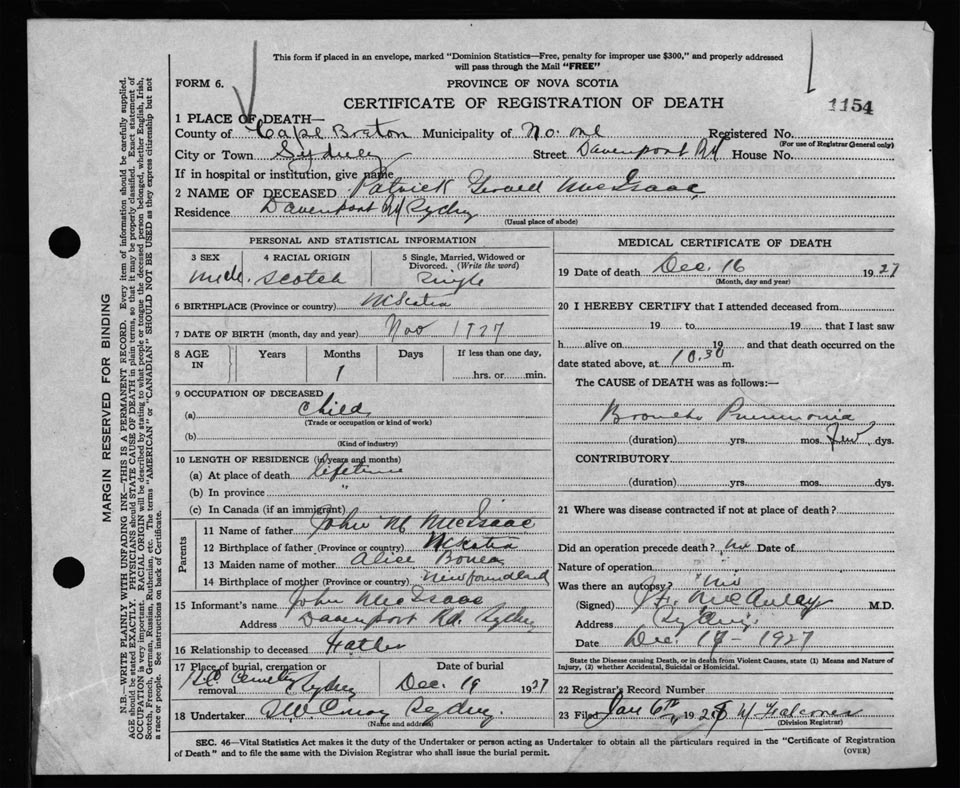 This form if placed in an envelope, marked "Dominion Statistics—Free, penalty for improper use $300," and properly addressed
will pass through the Mail "FREE"
FORM 6.
PROVINCE OF NOVA SCOTIA
CERTIFICATE OF REGISTRATION OF DEATH
1154
1 PLACE OF DEATH—
County of Cape Breton Municipality of No. one Registered No.
(For use of Registrar General only)
City or Town Sydney Street Davenport Rd House No.
If in hospital or institution, give name
2 NAME OF DECEASED Patrick Gerald MacIsaac
Residence Davenport Rd Sydney
(Usual place of abode)
PERSONAL AND STATISTICAL INFORMATION
3 SEX 4 RACIAL ORIGIN 5 Single, Married, Widowed or Divorced. (Write the word)
Male. Scotch Single
6 BIRTHPLACE (Province or country) N Scotia
7 DATE OF BIRTH (month, day and year) Nov 1927
8 AGE IN Years Months Days If less than one day,
1 hrs. or min.
9 OCCUPATION OF DECEASED
(a) Child
(Trade or occupation or kind of work)
(b)
(Kind of industry)
10 LENGTH OF RESIDENCE (in years and months)
(a) At place of death lifetime
(b) In province "
(c) In Canada (if an immigrant)
Parents
11 Name of father John M McIsaac
12 Birthplace of father (Province or country) N Scotia
13 Maiden name of mother Alice
14 Birthplace of mother (Province or country) Newfoundland
15 Informant's name John MacIsaac
Address Davenport Rd. Sydney
16 Relationship to deceased Father
17 Place of burial, cremation or removal Date of burial
R.C. Cemetery Sydney Dec. 19 1927
18 Undertaker Sydney.
(Name and address)
MEDICAL CERTIFICATE OF DEATH
19 Date of death Dec. 16 1927
(Month, day and year)
20 I HEREBY CERTIFY that I attended deceased from
19 to 19 that I last saw
h alive on 19 and that death occurred on the
date stated above, at 10.30 m.
The CAUSE of DEATH was as follows:—
Broncho Pneumonia
(duration) yrs. mos. few dys.
CONTRIBUTORY
(duration) yrs. mos. dys.
21 Where was disease contracted if not at place of death?
Did an operation precede death? no Date of
Nature of operation
Was there an autopsy? no
(Signed) McAulay M.D.
Address Sydney
Date Dec. 17 - 1927
State the Disease causing Death, or in death from Violent Causes, state (1) Means and Nature of Injury, (2) whether Accidental, Suicidal or Homicidal.
22 Registrar's Record Number
23 Filed Jan 6th, 1928 Falconer
(Division Registrar)
SEC. 46—Vital Statistics Act makes it the duty of the Undertaker or person acting as Undertaker to obtain all the particulars required in the "Certificate of Registration
of Death" and to file the same with the Division Registrar who shall issue the burial permit.
(OVER)
MARGIN RESERVED FOR BINDING
N.B.—WRITE PLAINLY WITH UNFADING INK—THIS IS A PERMANENT RECORD. Every item of information should be carefully supplied.
AGE should be stated EXACTLY. PHYSICIANS should STATE CAUSE OF DEATH in plain terms, so that it may be properly classified. Exact statement of
OCCUPATION is very important. RACIAL ORIGIN will be described by stating to what people or tongue the deceased person belonged, whether English, Irish,
Scotch, French, German, Russian, Ruthenian, etc. The terms "AMERICAN" or "CANADIAN" SHOULD NOT BE USED as they express citizenship but not
a race or people. See instructions on back of Certificate.